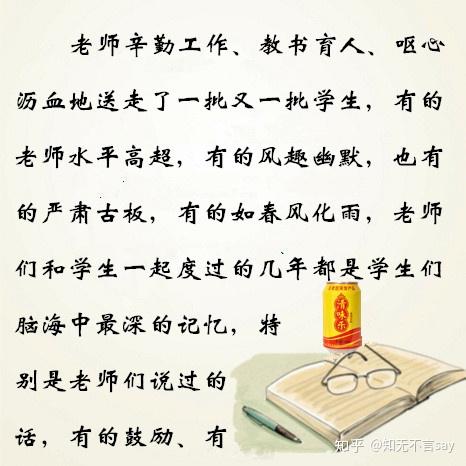 老师辛勤工作、教书育人、呕心
沥血地送走了一批又一批学生，有的
老师水平高超，有的风趣幽默，也有
的严肃古板，有的如春风化雨，老师
们和学生一起度过的几年都是学生们
脑海中最深的记忆，特
别是老师们说过的
话，有的鼓励、有
清味乐
知乎 @知无不言say